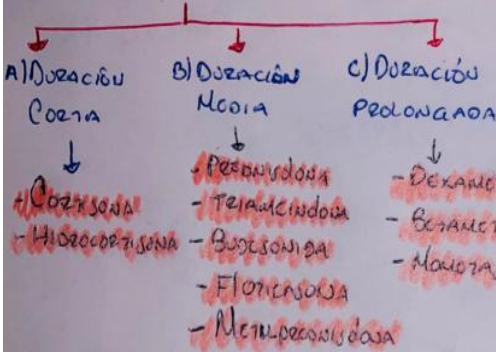 A) DURACIÓN CORTA
- CORTISONA
- HIDROCORTISONA
B) DURACIÓN MEDIA
- PREDNISOLONA
- TRIAMCINOLONA
- BUDESONIDA
- FLUTICASONA
- METILPREDNISOLONA
C) DURACIÓN PROLONGADA
- DEXAME
- BETAMET
- MOMETA